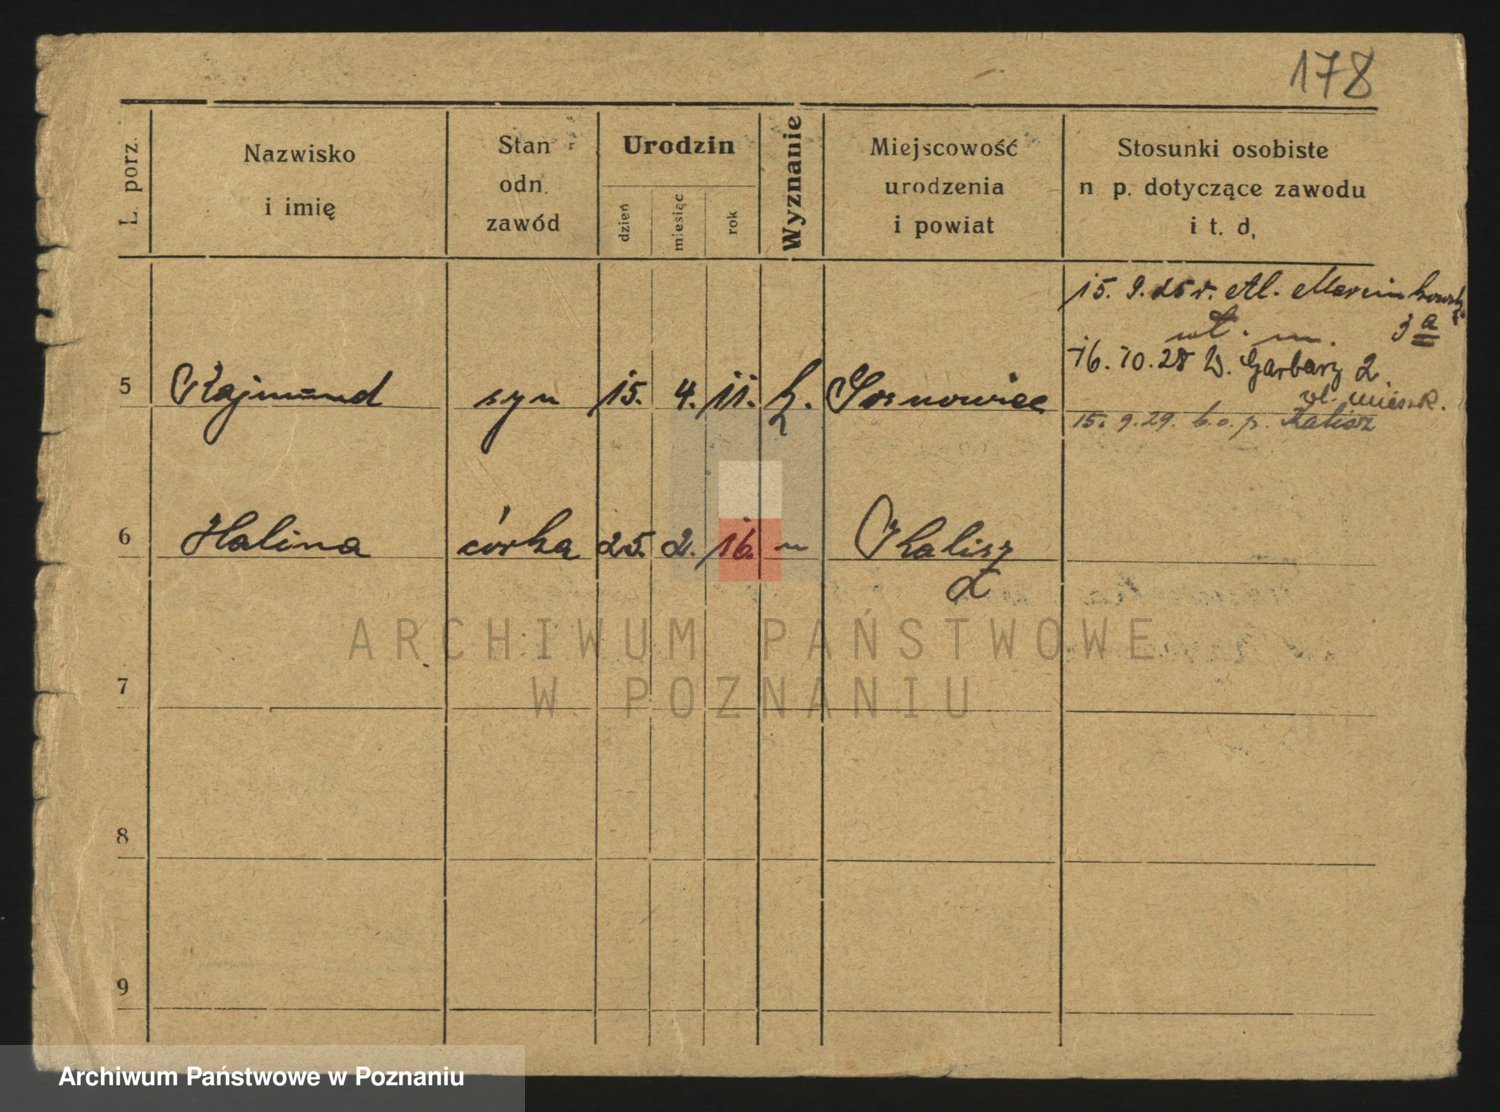 178
L. porz.
Nazwisko
i imię
Stan
odn.
zawód
Urodzin
dzień
miesiąc
rok
Wyznanie
Miejscowość
urodzenia
i powiat
Stosunki osobiste
n p. dotyczące zawodu
i t. d,
15. 9. 25 r. Al. Marcinkowsk.
3 a
wł. m.
16. 10. 28 W. Garbary 2
wł. mieszk.
5 Rajmund syn 15. 4. 11. k. Sosnowiec
15. 9. 29. b. o. p. Kalisz
6 Halina córka 25. 2. 16. " Kalisz
7
8
9
ARCHIWUM PAŃSTWOWE
W POZNANIU
Archiwum Państwowe w Poznaniu